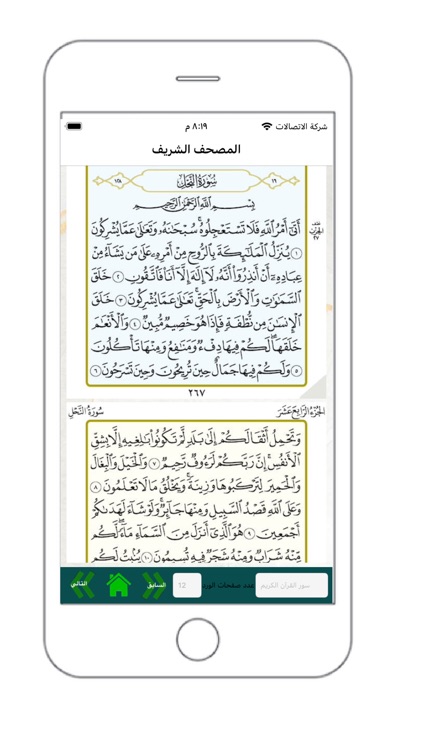 شركة الاتصالات ٨:١٩ م
المصحف الشريف
١٦ سُورَةُ النَّحْلِ ١٢٨
بِسْمِ اللَّهِ الرَّحْمَٰنِ الرَّحِيمِ
أَتَىٰٓ أَمْرُ اللَّهِ فَلَا تَسْتَعْجِلُوهُ ۚ سُبْحَٰنَهُۥ وَتَعَٰلَىٰ عَمَّا يُشْرِكُونَ
١ يُنَزِّلُ الْمَلَٰٓئِكَةَ بِالرُّوحِ مِنْ أَمْرِهِۦ عَلَىٰ مَن يَشَآءُ مِنْ
عِبَادِهِۦٓ أَنْ أَنذِرُوٓا۟ أَنَّهُۥ لَآ إِلَٰهَ إِلَّآ أَنَا۠ فَاتَّقُونِ ٢ خَلَقَ
السَّمَٰوَٰتِ وَالْأَرْضَ بِالْحَقِّ ۚ تَعَٰلَىٰ عَمَّا يُشْرِكُونَ ٣ خَلَقَ
الْإِنسَٰنَ مِن نُّطْفَةٍ فَإِذَا هُوَ خَصِيمٌ مُّبِينٌ ٤ وَالْأَنْعَٰمَ
خَلَقَهَا ۗ لَكُمْ فِيهَا دِفْءٌ وَمَنَٰفِعُ وَمِنْهَا تَأْكُلُونَ
٥ وَلَكُمْ فِيهَا جَمَالٌ حِينَ تُرِيحُونَ وَحِينَ تَسْرَحُونَ ٦
٢٦٧
الجُزْءُ الرَّابِعَ عَشَرَ سُورَةُ النَّحْلِ
وَتَحْمِلُ أَثْقَالَكُمْ إِلَىٰ بَلَدٍ لَّمْ تَكُونُوا۟ بَٰلِغِيهِ إِلَّا بِشِقِّ
الْأَنفُسِ ۚ إِنَّ رَبَّكُمْ لَرَءُوفٌ رَّحِيمٌ ٧ وَالْخَيْلَ وَالْبِغَالَ
وَالْحَمِيرَ لِتَرْكَبُوهَا وَزِينَةً ۚ وَيَخْلُقُ مَا لَا تَعْلَمُونَ ٨
وَعَلَى اللَّهِ قَصْدُ السَّبِيلِ وَمِنْهَا جَآئِرٌ ۚ وَلَوْ شَآءَ لَهَدَىٰكُمْ
أَجْمَعِينَ ٩ هُوَ الَّذِىٓ أَنزَلَ مِنَ السَّمَآءِ مَآءً ۖ لَّكُم
مِّنْهُ شَرَابٌ وَمِنْهُ شَجَرٌ فِيهِ تُسِيمُونَ ١٠ يُنۢبِتُ لَكُم
سور القران الكريم عدد صفحات الورد 12 السابق التالي